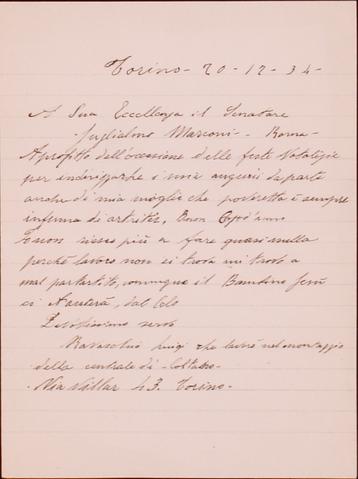 Torino - 20 - 12 - 34 -
A Sua Eccellenza il Senatore
Guglielmo Marconi - Roma -
Aprofitto dell'occasione delle feste Natalizie
per indirizzarle i miei auguri da parte
anche di mia moglie che poveretta è sempre
inferma di artrite, Buon Capo d'anno
E non riesco più a fare quasi nulla
perchè lavoro non si trova mi trovo a
mal partito, comunque il Bambino Gesù
ci Aiuterà, dal Celo
servo
Luigi che lavrò nel montaggio
della centrale di Coltano -
Via Villar 43. Torino -